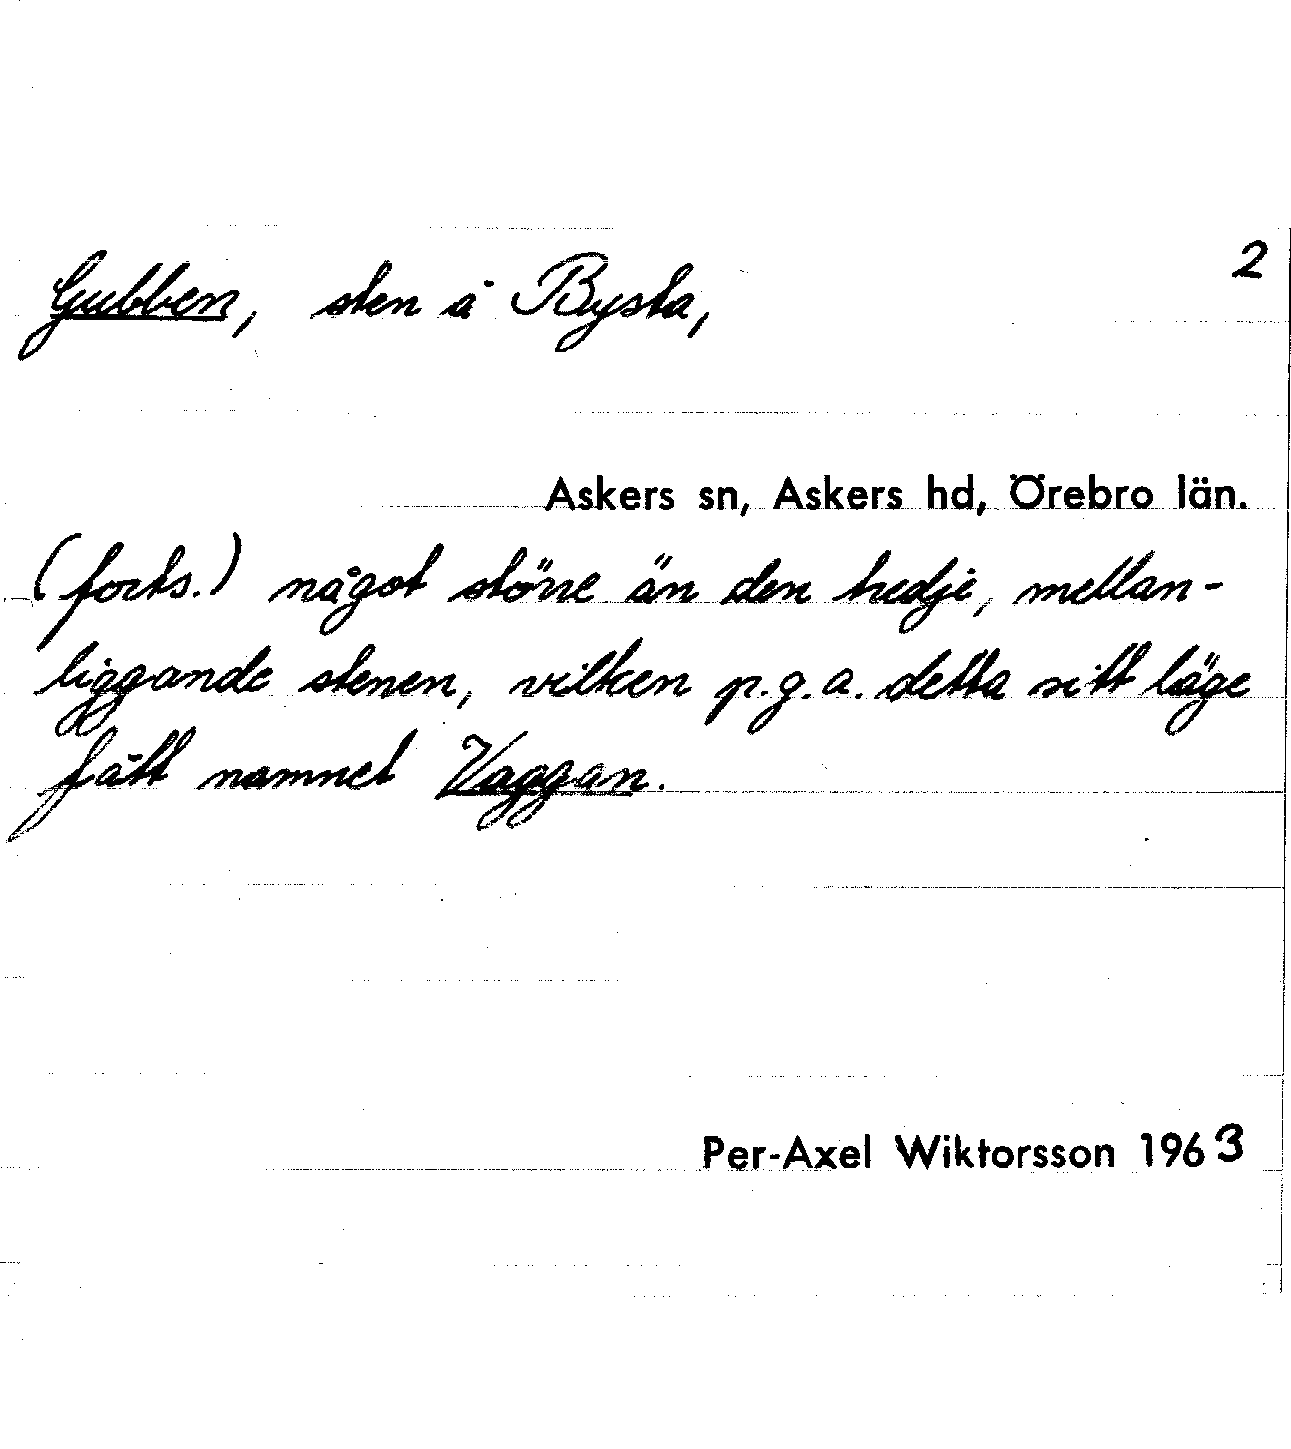 Gubben, sten å Bysta,
2
Askers sn, Askers hd, Örebro län.
(forts.) något större än den tredje, mellan-
liggande stenen, vilken p.g.a. detta sitt läge
fått namnet Vaggan.
Per-Axel Wiktorsson 1963